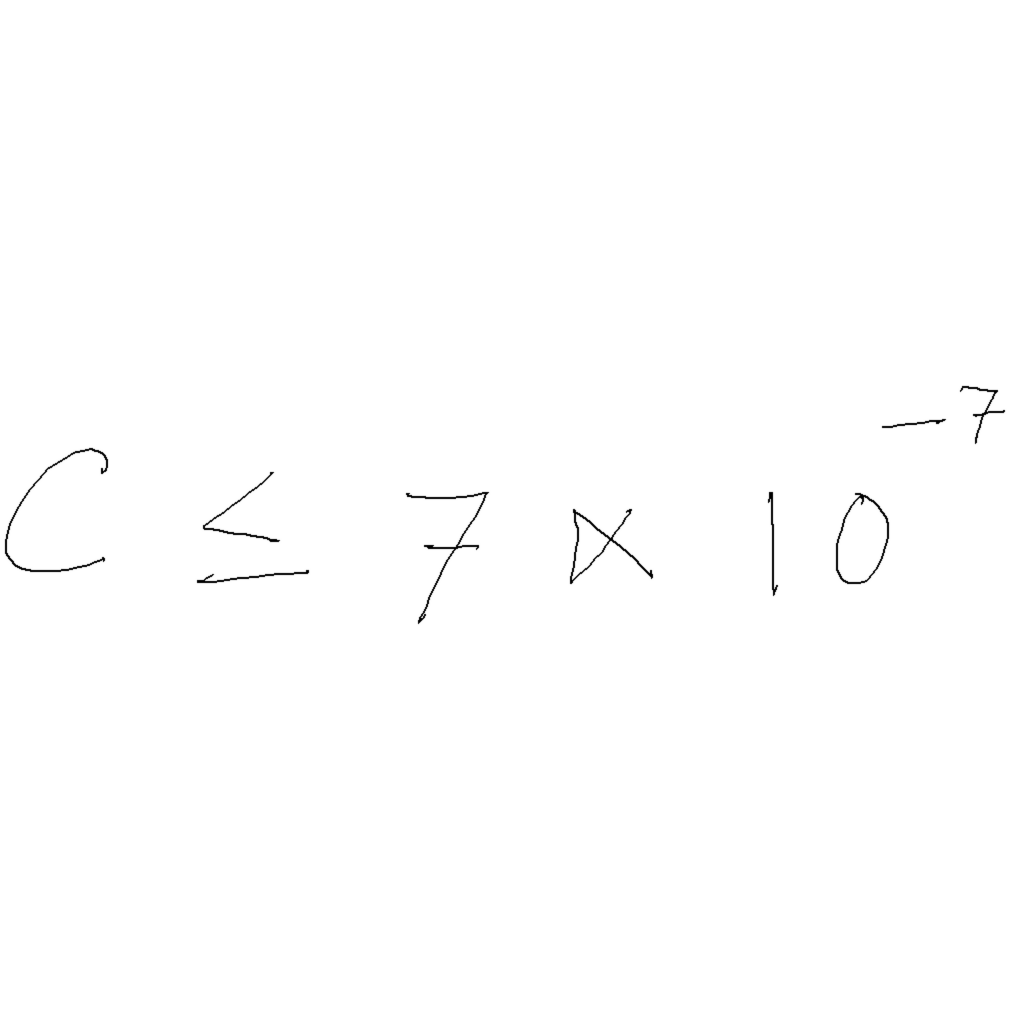 C ≤ 7 × 10⁻⁷